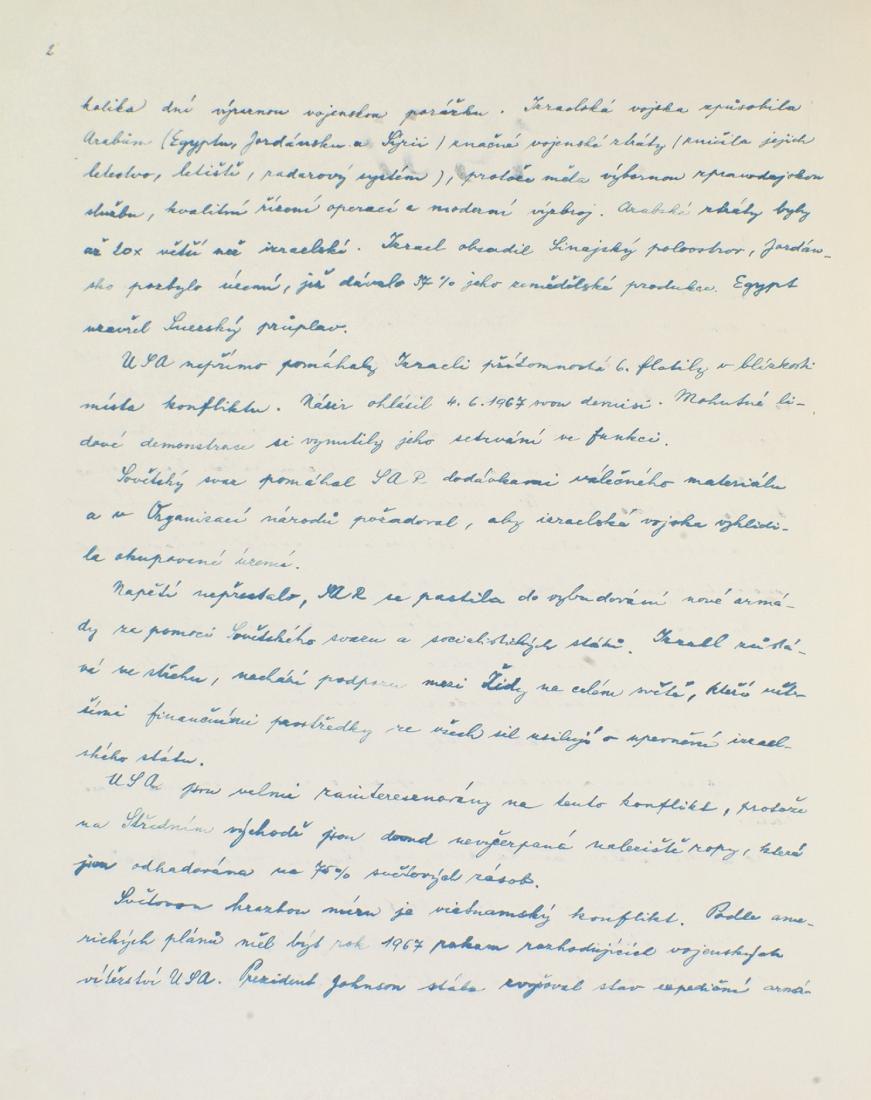 2
kolika dní výraznou vojenskou porážku. Izraelská vojska způsobila
Arabům (Egyptu, Jordánsku a Sýrii) značné vojenské ztráty (zničila jejich
letectvo, letiště, radarový systém), protože měla výbornou zpravodajskou
službu, kvalitní řízení operací a moderní výzbroj. Arabské ztráty byly
až 20x větší než izraelské. Izrael obsadil Sinajský poloostrov, Jordán-
sko pozbylo území, jež dávalo % jeho zemědělské produkce. Egypt
uzavřel Suezský průplav.
USA nepřímo pomáhaly Izraeli přítomností 6. flotily v blízkosti
místa konfliktu. Násir ohlásil 4.6.1967 svou demisi. Mohutné li-
dové demonstrace si vynutily jeho setrvání ve funkci.
Sovětský svaz pomáhal SAR dodávkami válečného materiálu
a v Organizaci národů požadoval, aby izraelská vojska vyklidi-
la okupovaná území.
Napětí nepřestalo, se pustila do vybudování nové armá-
dy za pomoci Sovětského svazu a socialistických států. Izrael zůstá-
vá ve střehu, nachází podporu mezi Židy na celém světě, kteří
finančními prostředky ze všech sil usilují o upevnění izrael-
ského státu.
USA jsou velmi zainteresovány na tento konflikt, protože
na Středním východě jsou nevyčerpaná naleziště ropy, která
jsou odhadována na 75% světových zásob.
Světovou hrozbou míru je vietnamský konflikt. Podle ame-
rických plánů měl být rok 1967 rokem rozhodujících vojenských
vítězství USA. Prezident Johnson stále zvyšoval stav expediční armá-